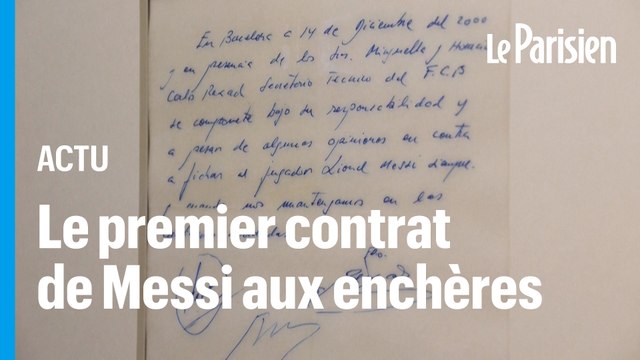 En Barcelona a 14 de Diciembre del 2000
y en presencia de los Sres. Minguella y Horacio
Carlos Rexach Secretario Tecnico del F.C.B
se compromete bajo su responsabilidad y
a pesar de algunas opiniones en contra
a fichar al jugador Lionel Messi siempre
y cuando nos mantengamos en las
Le Parisien
ACTU
Le premier contrat
de Messi aux enchères